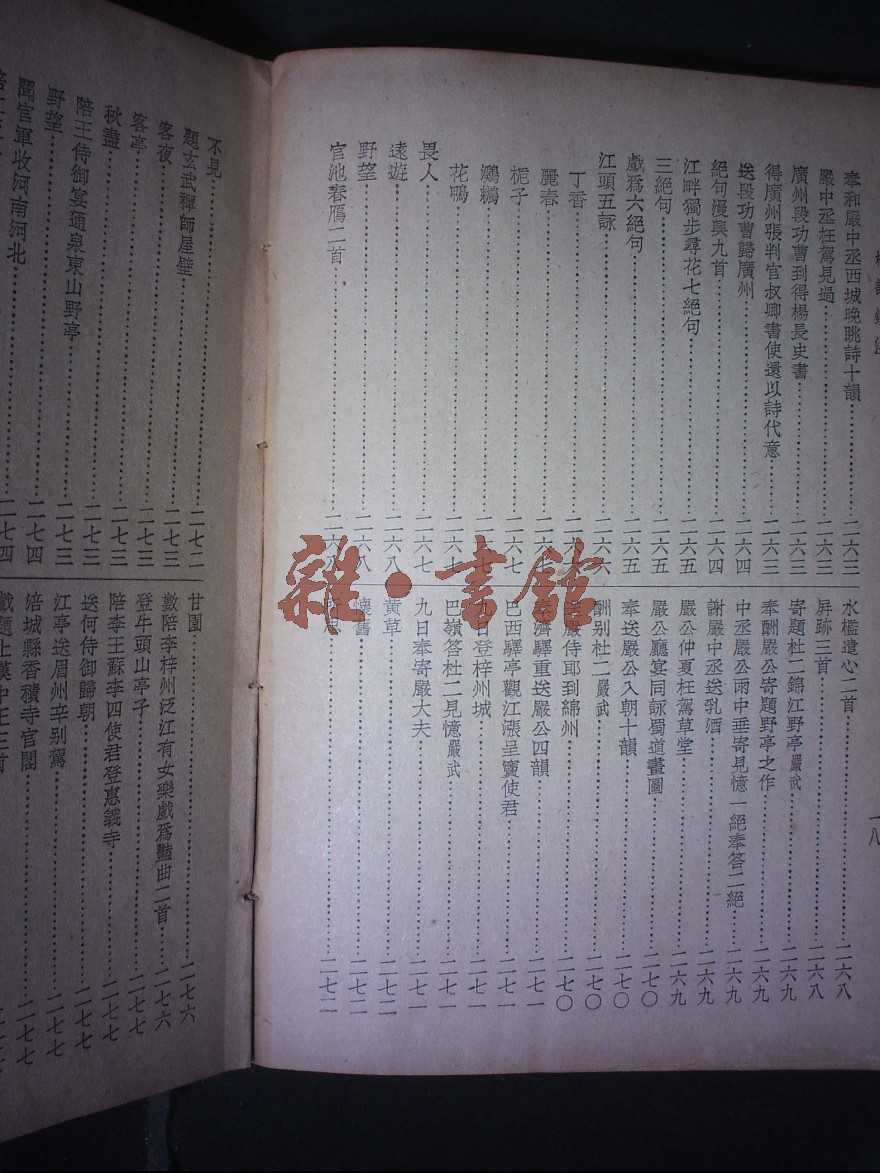 一八
奉和嚴中丞西城晚眺詩十韻 二六三
嚴中丞枉駕見過 二六三
廣州段功曹到得楊長史書 二六三
得廣州張判官叔卿書使還以詩代意 二六三
送段功曹歸廣州 二六四
絕句漫興九首 二六四
江畔獨步尋花七絕句 二六五
三絕句 二六五
戲爲六絕句 二六五
江頭五詠 二六六
丁香
麗春
梔子 二六七
鸂鶒
花鴨 二六七
畏人 二六七
遠遊 二六八
野望 二六八
官池春鴈二首
水檻遣心二首 二六八
屏跡三首 二六八
寄題杜二錦江野亭 嚴武 二六九
奉酬嚴公寄題野亭之作 二六九
中丞嚴公雨中垂寄見憶一絕奉答二絕 二六九
謝嚴中丞送乳酒 二六九
嚴公仲夏枉駕草堂 二六九
嚴公廳宴同詠蜀道畫圖 二七〇
奉送嚴公入朝十韻 二七〇
酬别杜二 嚴武 二七〇
嚴侍郎到綿州 二七〇
濟驛重送嚴公四韻 二七一
巴西驛亭觀江漲呈竇使君 二七一
日登梓州城 二七一
巴嶺答杜二見憶 嚴武 二七一
九日奉寄嚴大夫 二七一
黄草 二七二
懷舊 二七二
二七二
不見 二七二
題玄武禪師屋壁 二七三
客夜 二七三
客亭 二七三
秋盡 二七三
陪王侍御宴通泉東山野亭 二七三
野望 二七三
聞官軍收河南河北 二七四
二七四
甘園 二七六
數陪李梓州泛江有女樂戲爲豔曲二首 二七六
登牛頭山亭子 二七七
陪李王蘇李四使君登惠義寺 二七七
送何侍御歸朝 二七七
江亭送眉州辛别駕 二七七
涪城縣香積寺官閣 二七七
戲題上漢中王三首
雜·書館